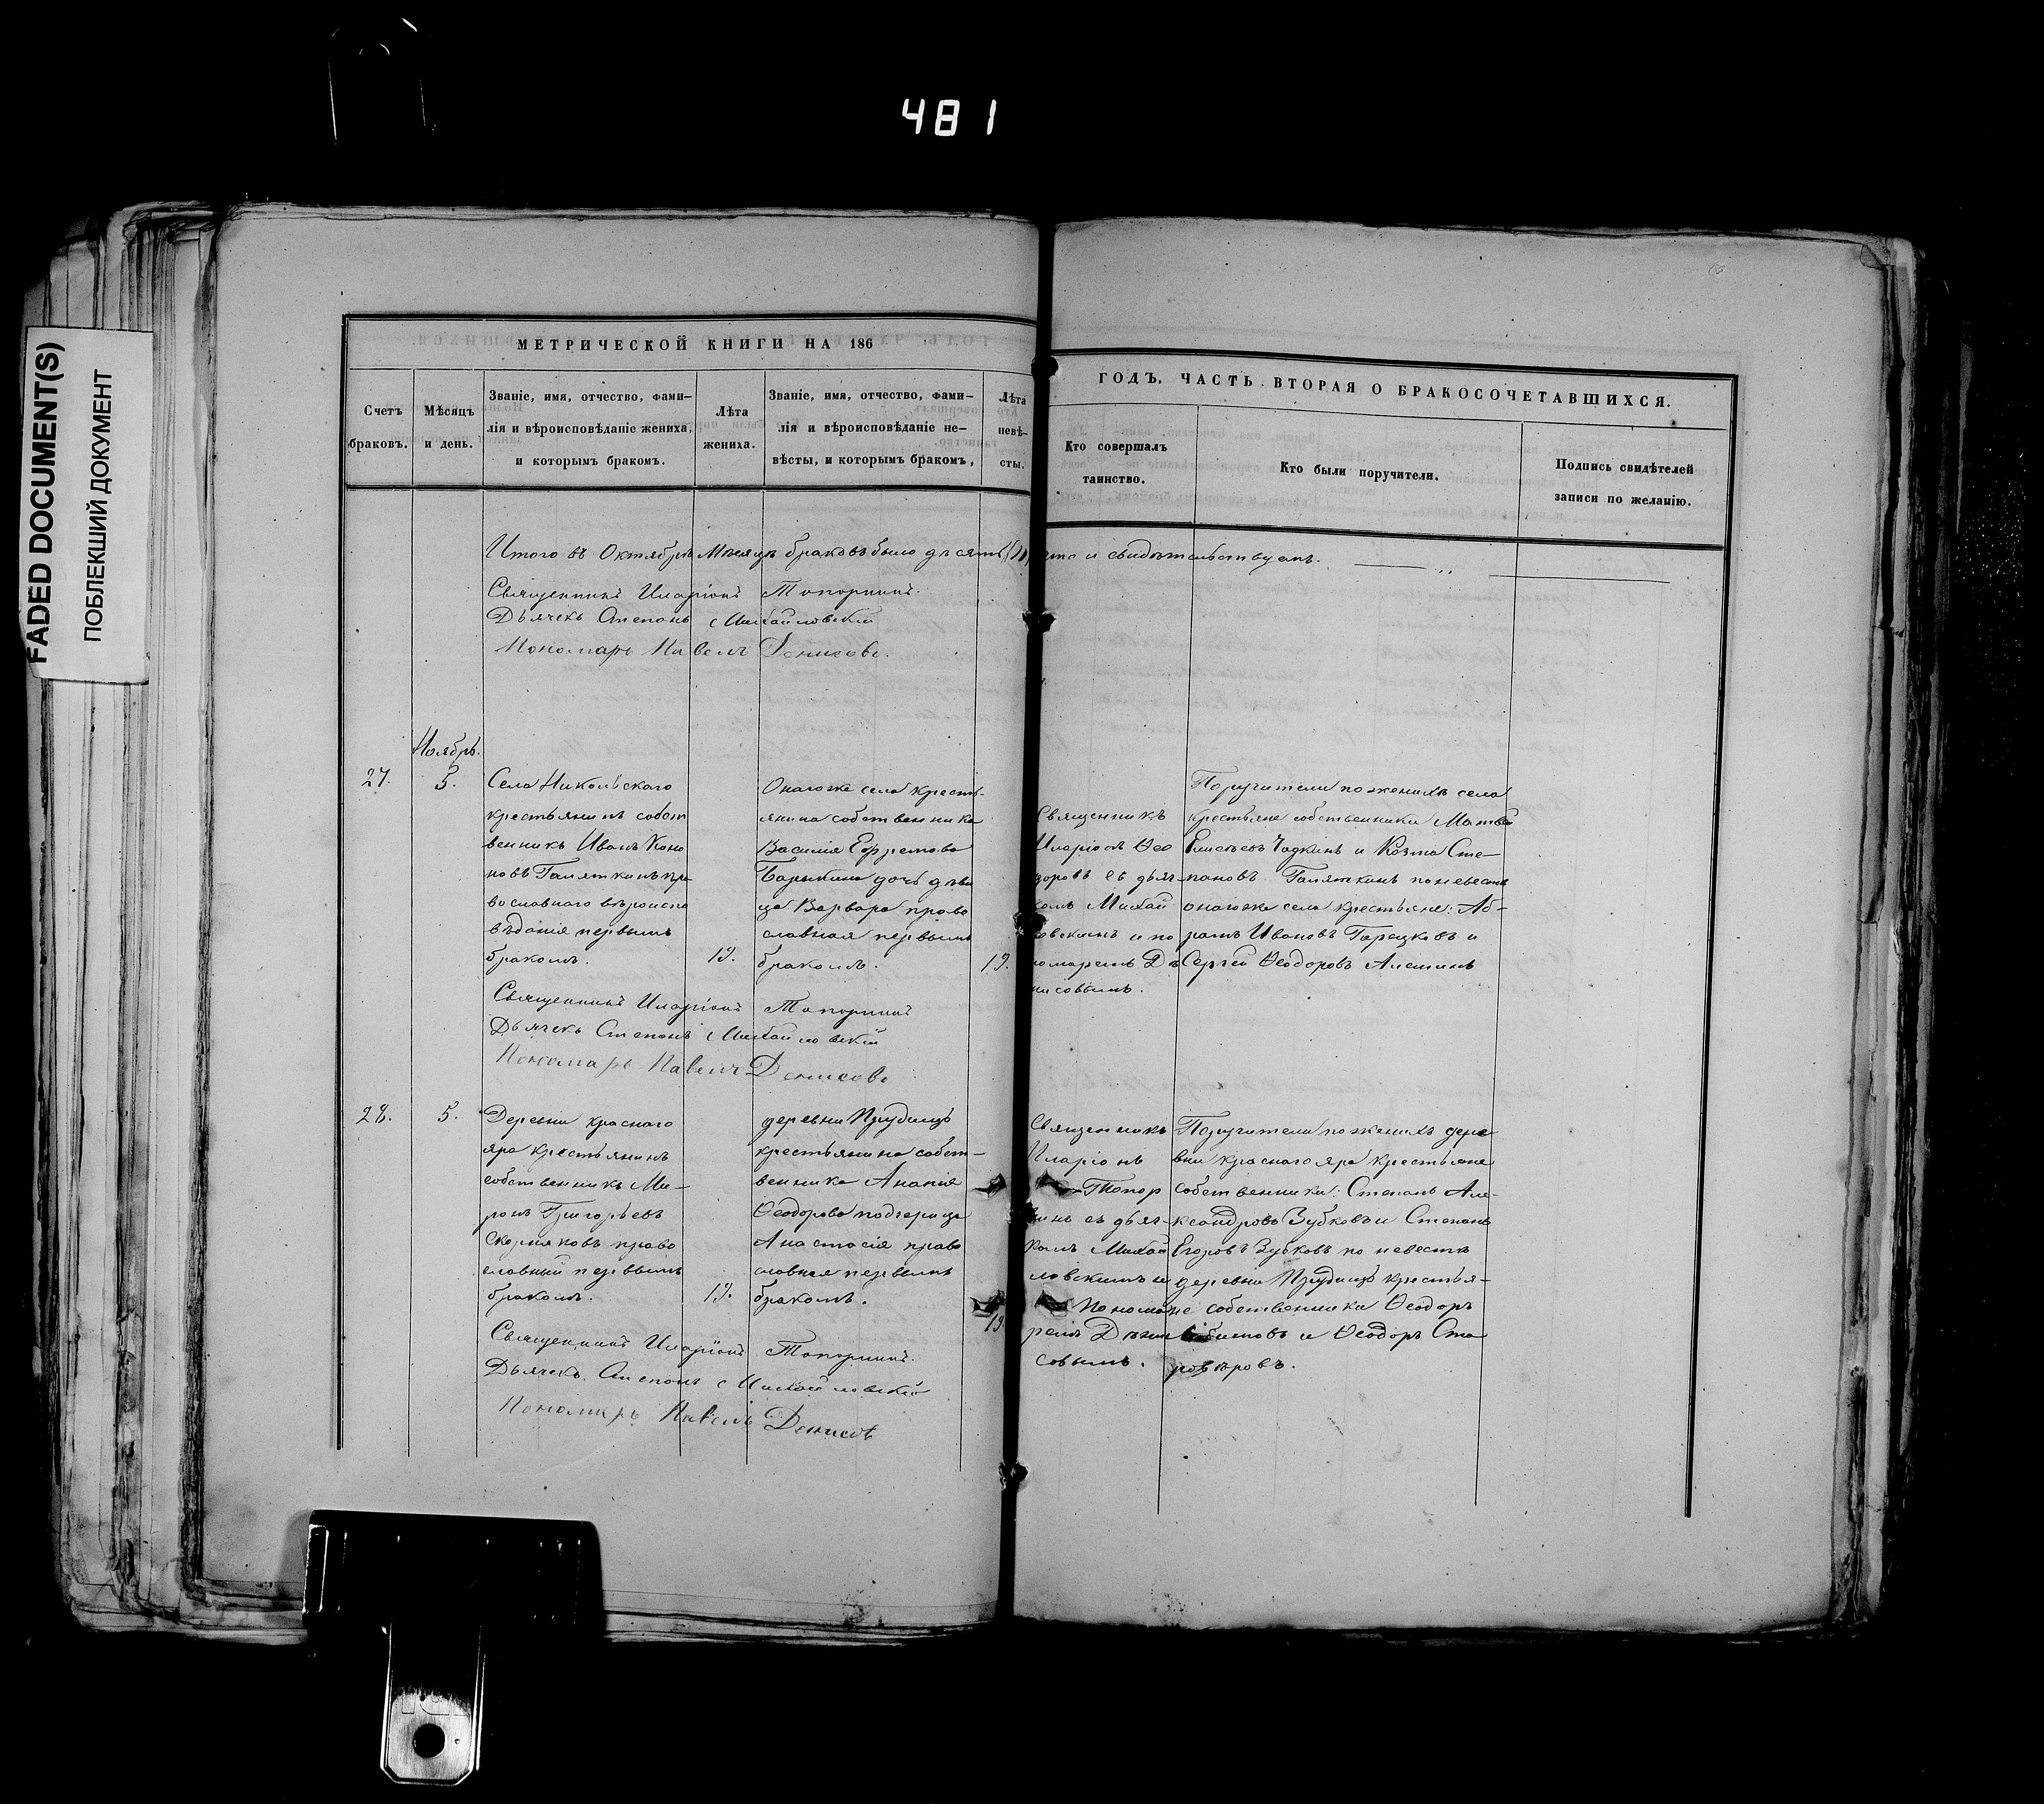 481
FADED DOCUMENT(S)
ПОБЛЕКШИЙ ДОКУМЕНТ
МЕТРИЧЕСКОЙ КНИГИ НА 186
Счетъ браковъ.
Мѣсяцъ и день.
Званіе, имя, отчество, фами-
лія и вѣроисповѣданіе жениха,
и которымъ бракомъ.
Лѣта
жениха.
Званіе, имя, отчество, фами-
лія и вѣроисповѣданіе не-
вѣсты, и которымъ бракомъ,
Лѣта
невѣ-
сты.
ГОДЪ, ЧАСТЬ ВТОРАЯ О БРАКОСОЧЕТАВШИХСЯ.
Кто совершалъ
таинство.
Кто были поручители.
Подпись свидѣтелей
записи по желанію.
Итого въ Октябрѣ Мѣсяцѣ браковъ было десять
и свидѣтельствуемъ.
Священникъ Иларіонъ Топорнинъ.
Дьячекъ Степанъ Михайловскій
Пономарь Павелъ Денисовъ.
Ноябрь.
27.
5.
Села Никольскаго
крестьянинъ собст
венникъ Иванъ Коно
новъ Галяткинъ пра
вославнаго вѣроиспо
вѣданія первымъ
бракомъ.
19.
Онагоже села кресть-
янина собственника
Василія Ефремова
Барыкина дочь дѣви
ца Варвара право
славная первымъ
бракомъ.
19.
Священникъ
Иларіонъ Ѳео
доровъ съ дьяч-
комъ Михай
ловскимъ и по
номаремъ Де
нисовымъ.
Поручители по женихѣ села
крестьяне собственники Матвей
Елисѣевъ Чадкинъ и Козма Сте-
пановъ Галяткинъ по невестѣ
онагоже села крестьяне: Аб-
рамъ Ивановъ Горшковъ и
Сергей Ѳеодоровъ Алешинъ
Священникъ Иларіонъ Топорнинъ
Дьячекъ Степанъ Михайловскій
Пономарь Павелъ Денисовъ
28.
5.
Деревни краснаго
яра крестьянинъ
собственникъ Ми-
ронъ Григорьевъ
Скорняковъ право
славный первымъ
бракомъ.
19.
деревни Прудищъ
крестьянина собст-
венника Ананія
Ѳеодорова подчерица
Анастасія право
славная первымъ
бракомъ.
19
Священникъ
Иларіонъ
Топор
нинъ съ дьяч-
комъ Михай
ловскимъ и
Понома
ремъ Дени
совымъ.
Поручители по женихѣ дере
вни краснаго яра крестьяне
собственники: Степанъ Але-
ксандровъ Зубковъ и Степанъ
Егоровъ Зубковъ по невестѣ
деревни Прудищъ крестья-
не собственники Ѳеодоръ
и Ѳеодоръ Ста
ровѣровъ.
Священникъ Иларіонъ Топорнинъ.
Дьячекъ Степанъ Михайловскій
Пономарь Павелъ Денисовъ